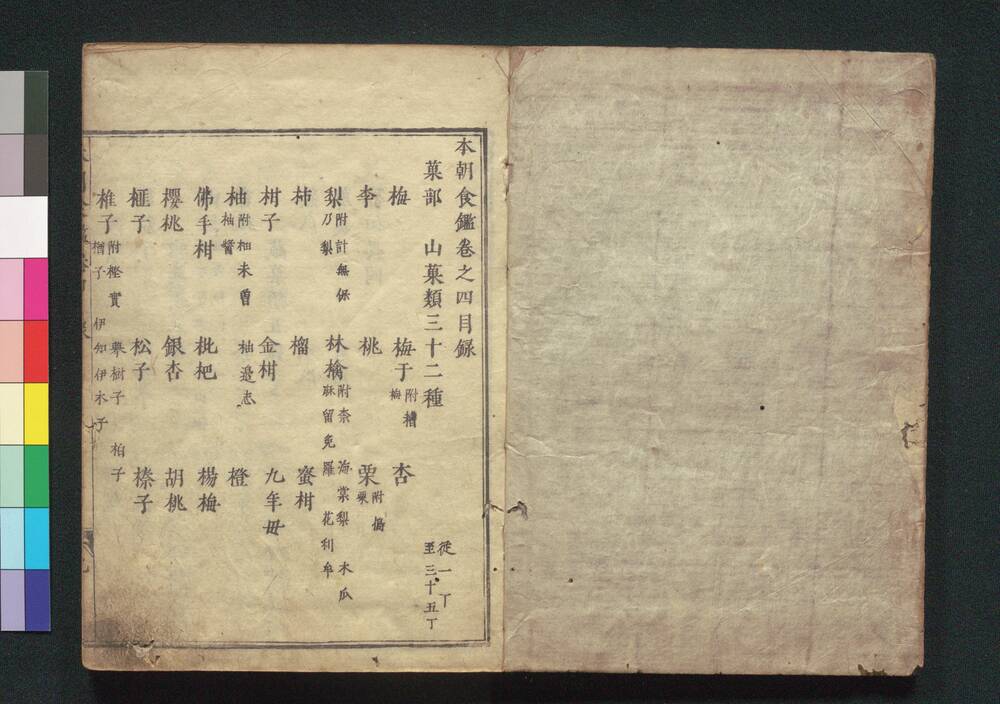 本朝食鑑卷之四目録
菓部 山菓類三十二種 從一丁至三十五丁
梅 梅干 附糟梅 杏
李 桃 栗 附搗栗
梨 附計無保乃梨 林檎 附柰 海棠梨 木瓜 麻留免羅 花利牟
柿 榴 蜜柑
柑子 金柑 九年毋
柚 附柚未曾 柚醬 柚邉志 橙
佛手柑 枇杷 楊梅
櫻桃 銀杏 胡桃
榧子 松子 榛子
椎子 附樫實 櫟樹子 柏子 橧子 伊知伊木子